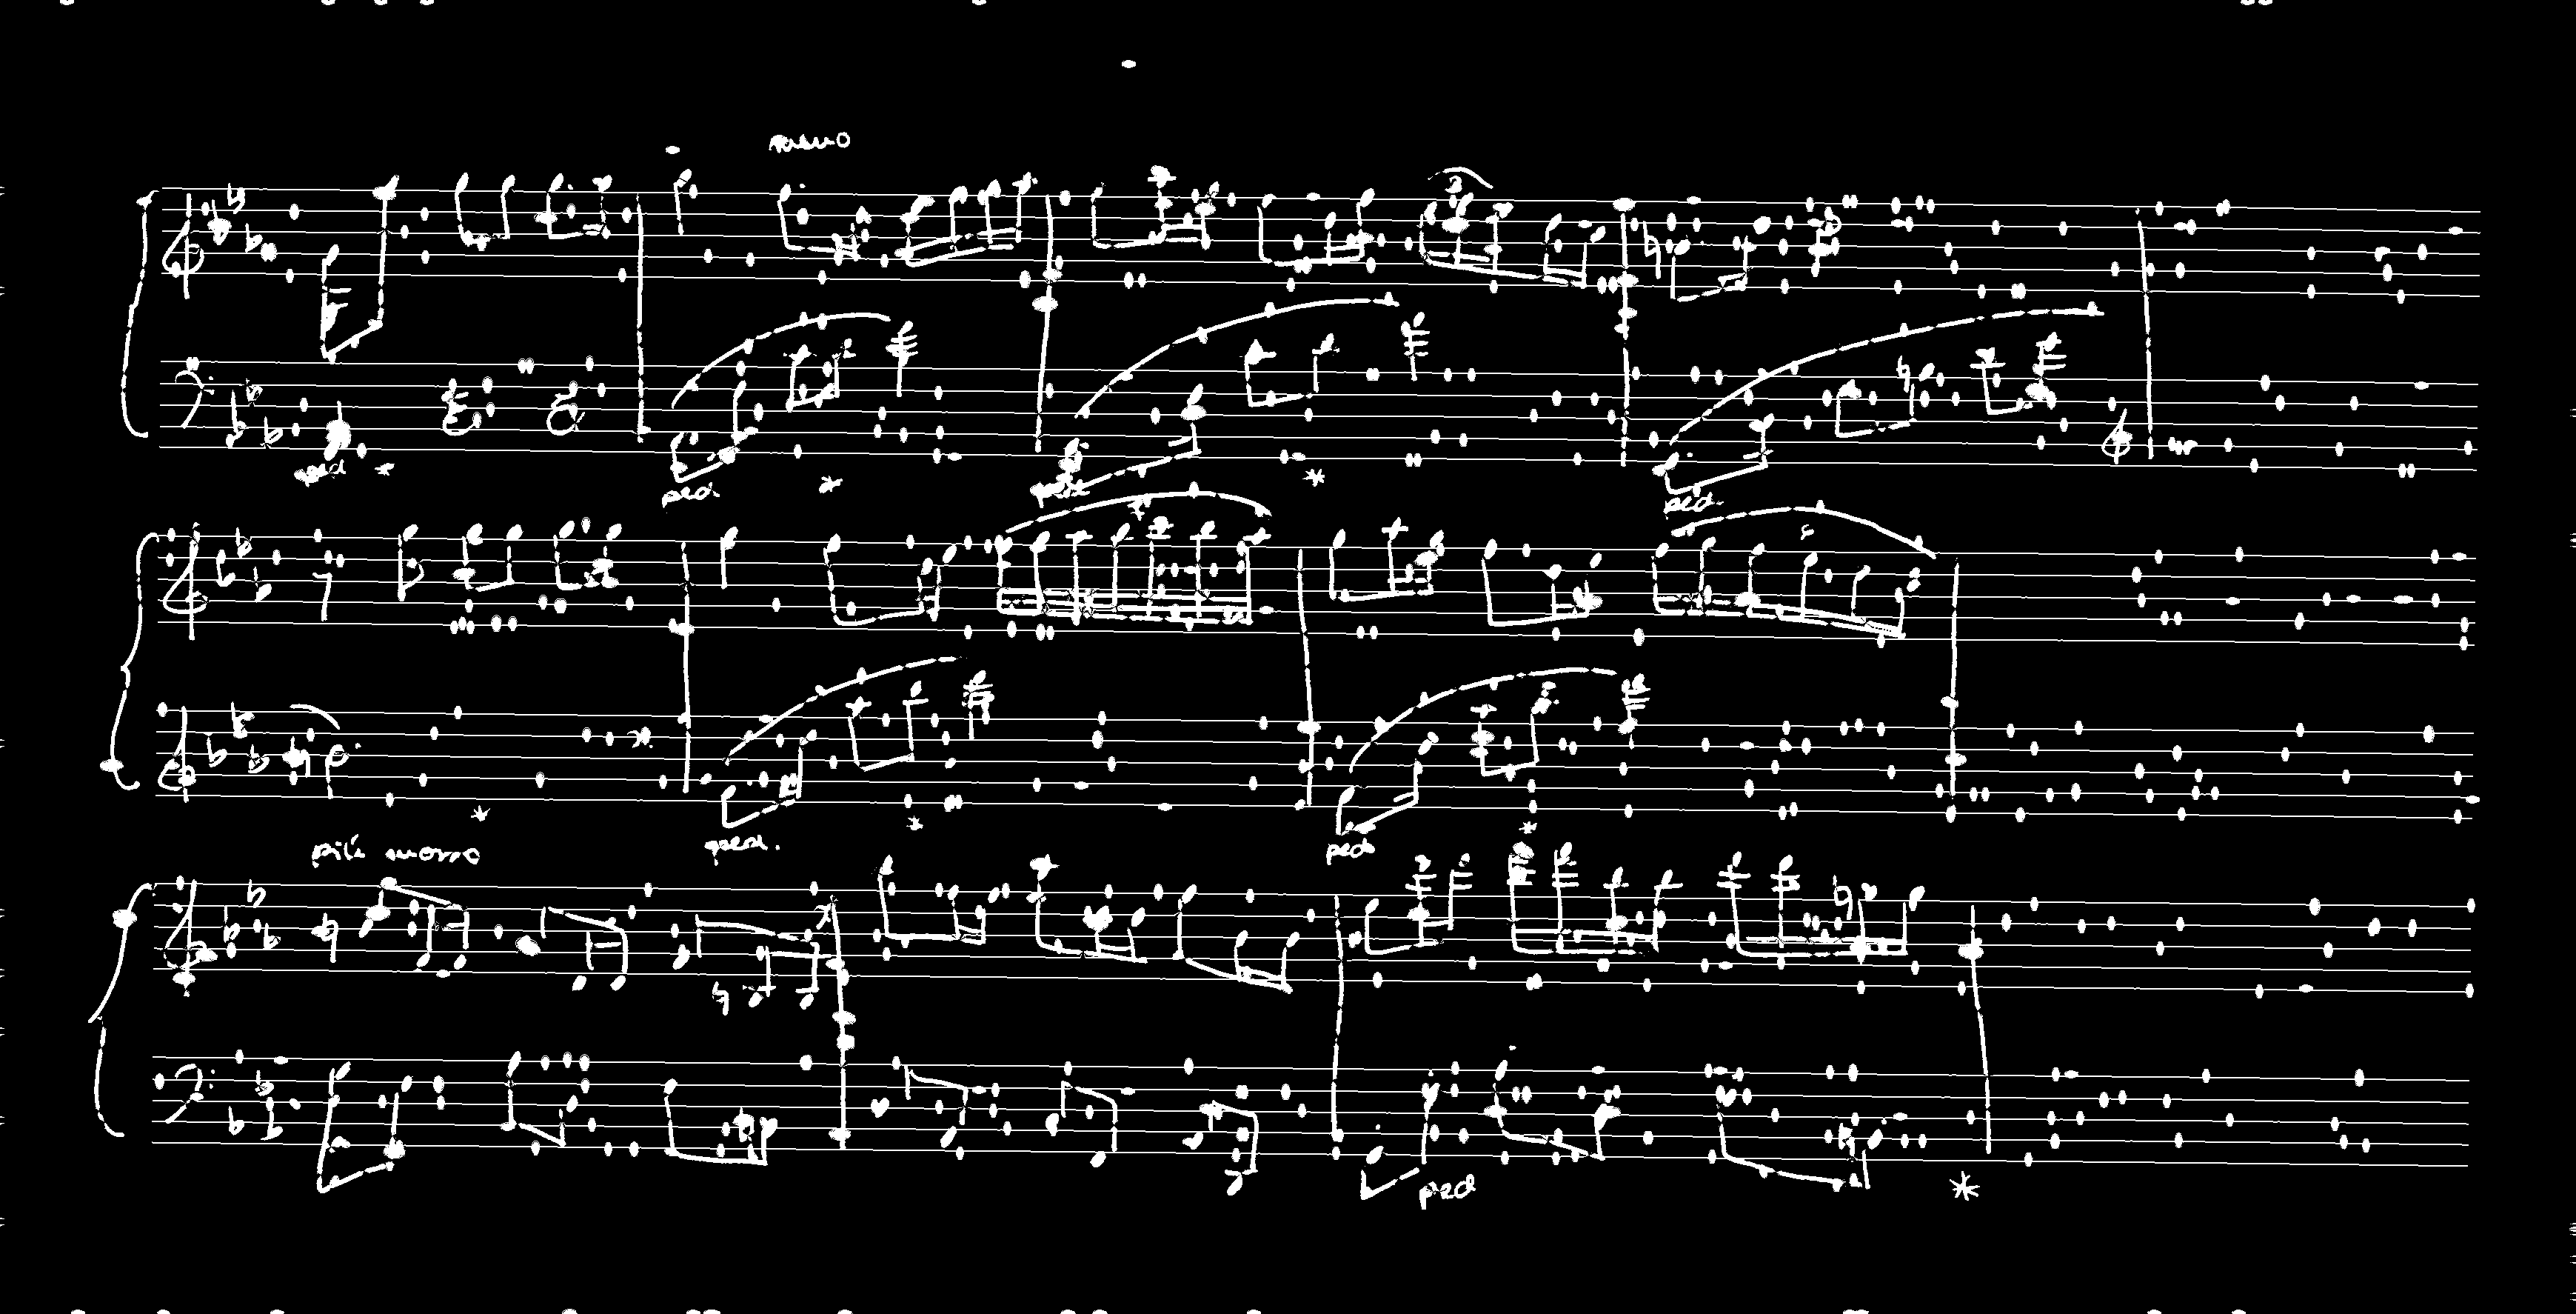 3
ped *
ped. * * ped.
* ped. * ped *
più mosso
ped *